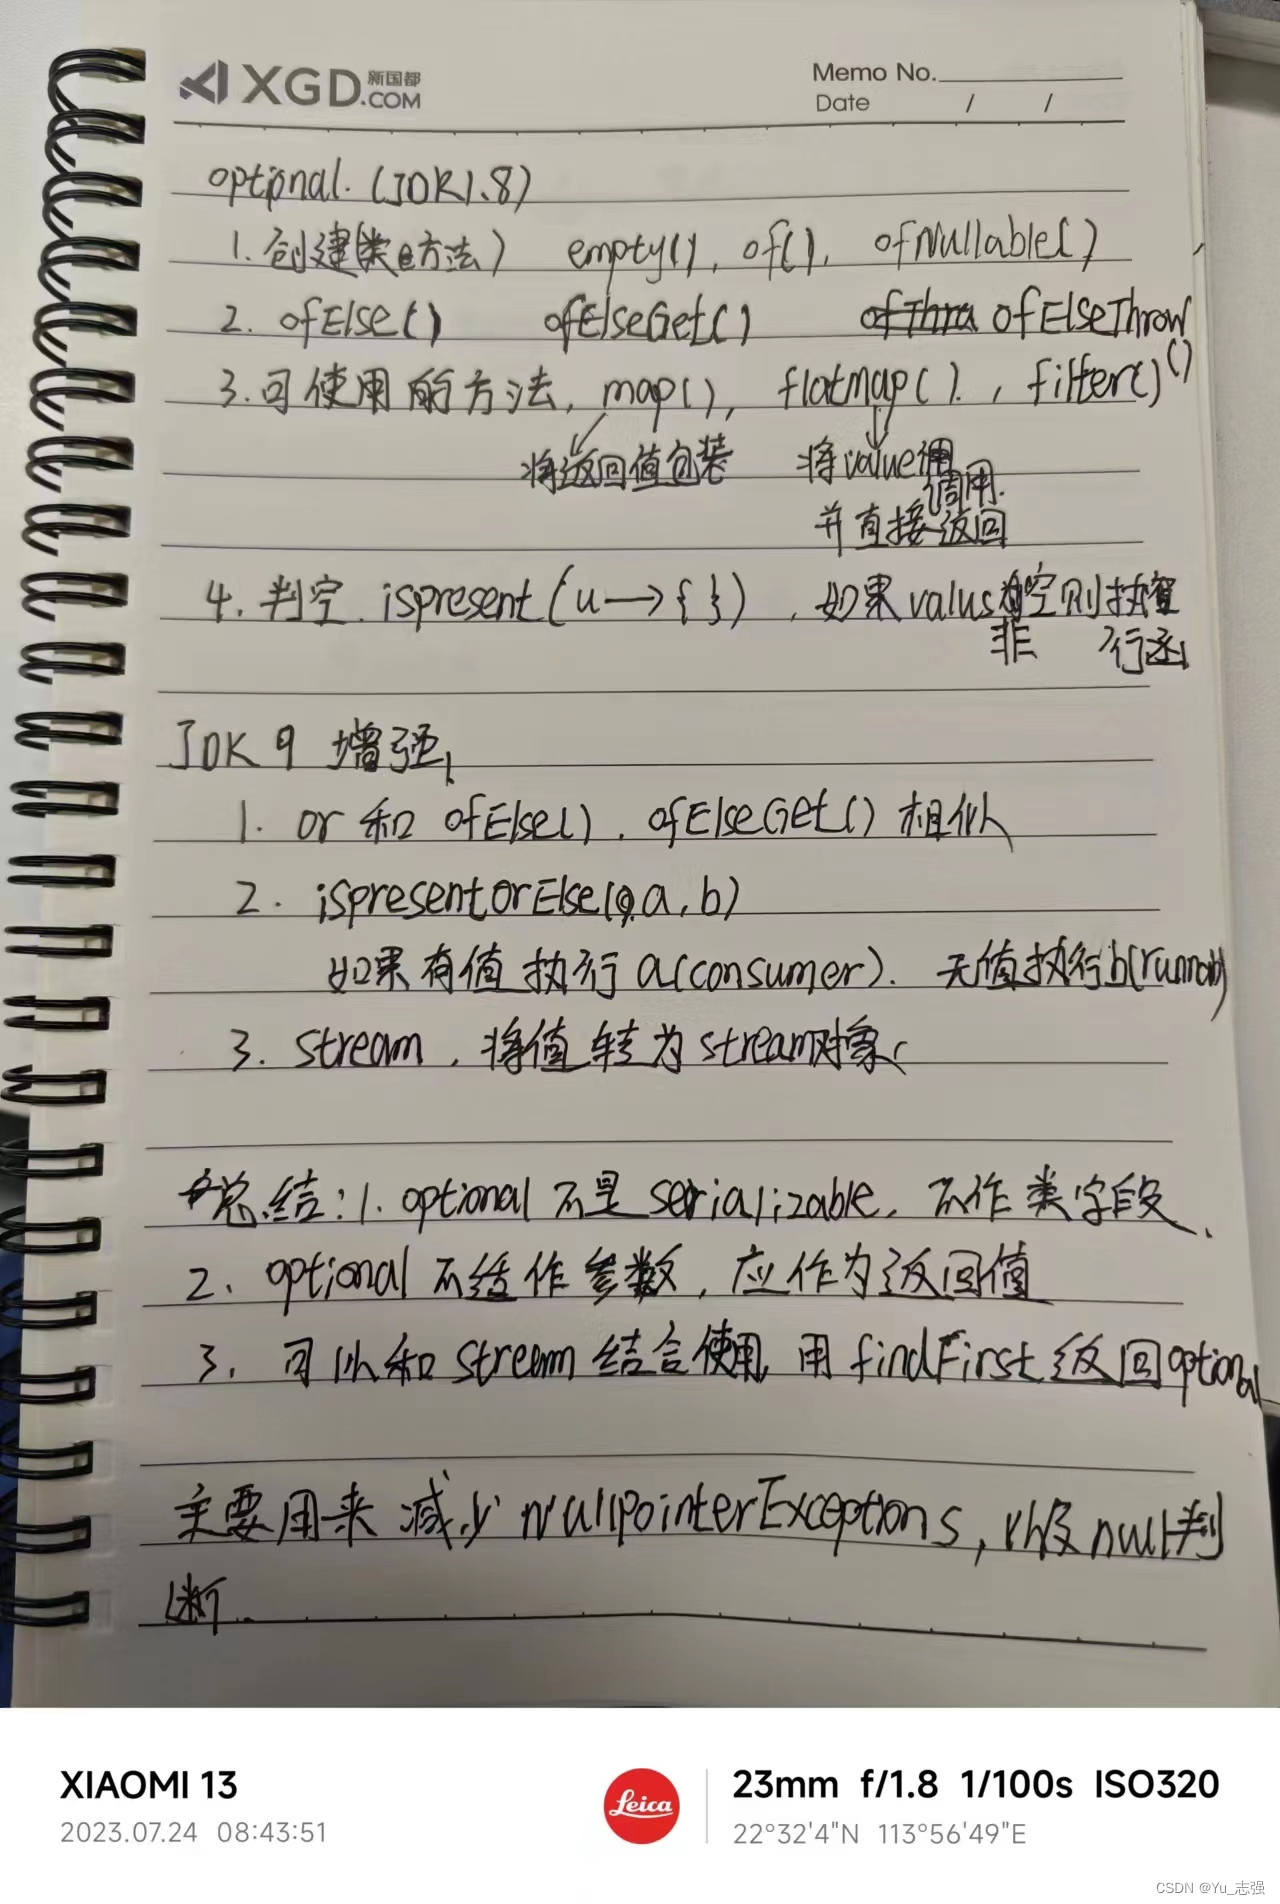 XGD.COM 新国都
Memo No.
Date / /
optional. (JDK1.8)
1. 创建(类方法) empty(), of(), ofNullable()
2. ofElse() ofElseGet() ofElseThrow()
3. 可使用的方法, map(), flatmap(), filter()
将返回值包装 将value调用
并直接返回
4. 判空. ispresent(u→{ }), 如果value非空则执行函
JDK 9 增强,
1. or 和 ofElse(), ofElseGet() 相似
2. ispresentorElse(a, b)
如果有值执行a(consumer). 无值执行b(runnab)
3. stream, 将值转为stream对象
总结: 1. optional 不是 serializable, 不作类字段.
2. optional 不作参数, 应作为返回值
3. 可以和 stream 结合使用, 用 findFirst 返回optional
主要用来减少 NullpointerExceptions, 以及null判
断.
XIAOMI 13
2023.07.24 08:43:51
Leica
23mm f/1.8 1/100s ISO320
22°32'4"N 113°56'49"E
CSDN @Yu_志强